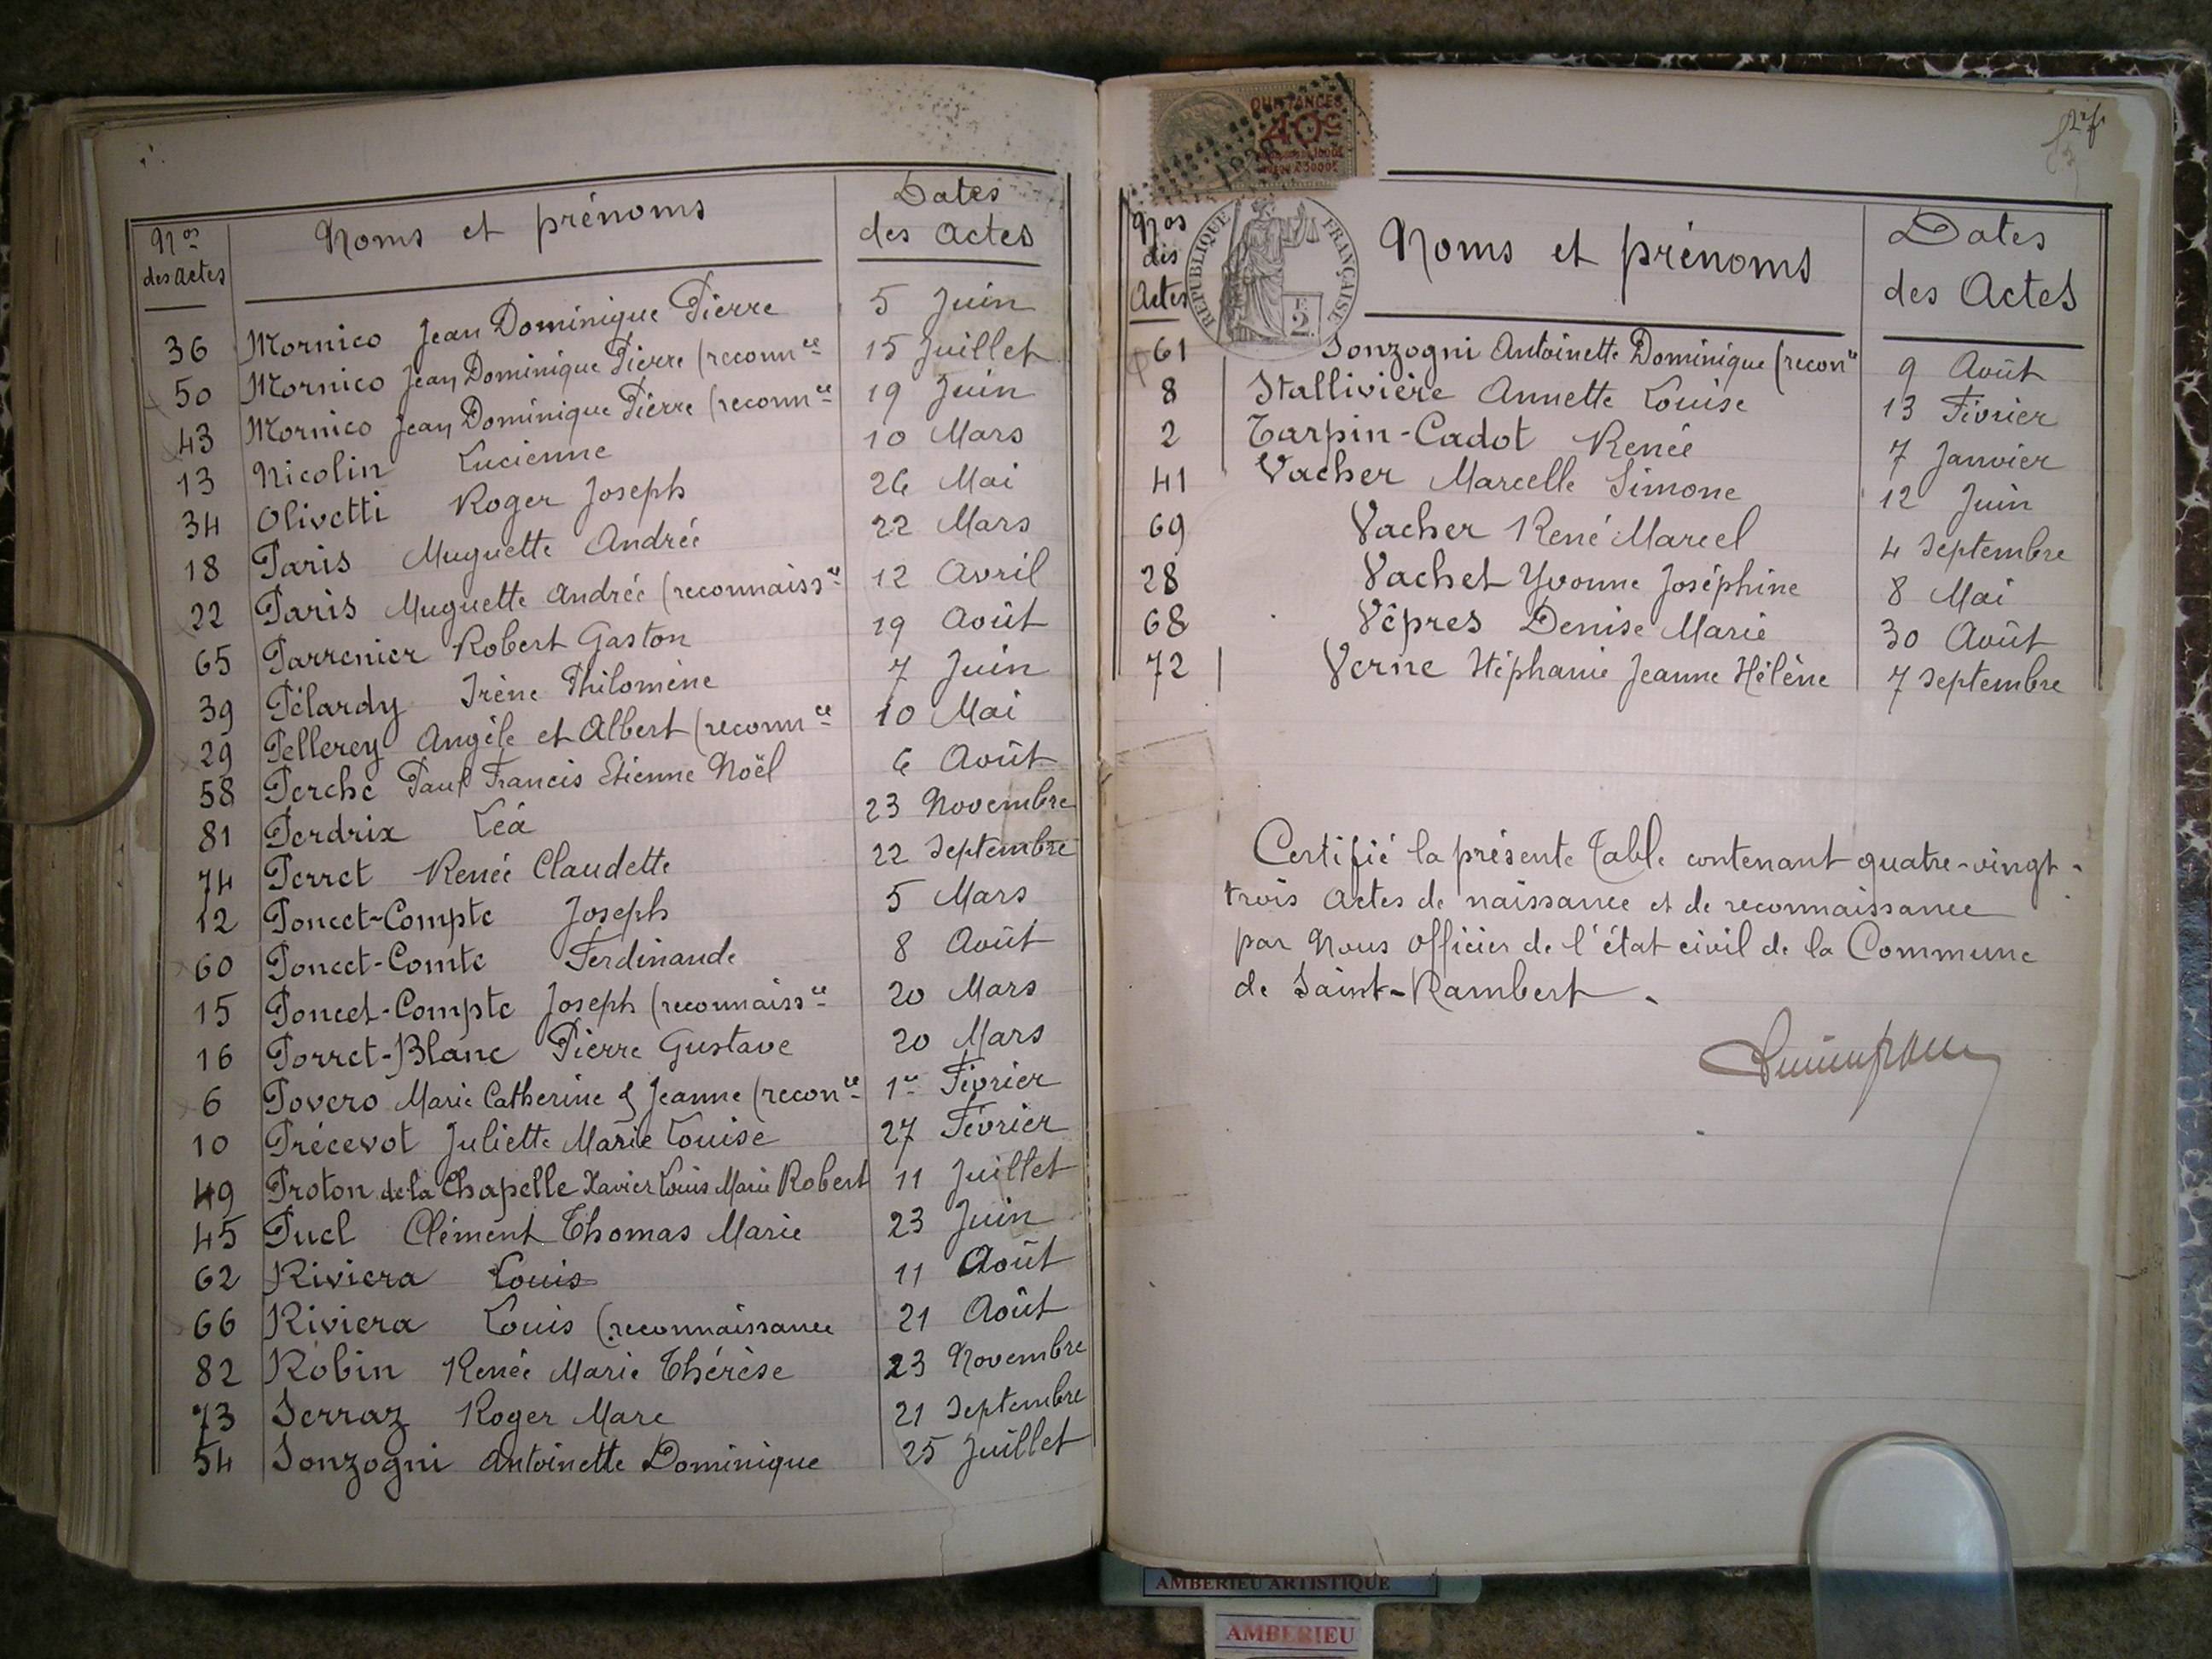 Nos
des actes
Noms et prénoms
Dates
des actes
36 Mornico Jean Dominique Pierre 5 Juin
50 Mornico Jean Dominique Pierre (reconnce 15 Juillet
43 Mornico Jean Dominique Pierre (reconnce 19 Juin
13 Nicolin Lucienne 10 Mars
34 Olivetti Roger Joseph 26 Mai
18 Paris Muguette Andrée 22 Mars
22 Paris Muguette Andrée (reconnaissce 12 Avril
65 Parrenier Robert Gaston 19 Août
39 Pélardy Irène Philomène 7 Juin
29 Pellerey Angèle et Albert (reconnce 10 Mai
58 Perche Paul Francis Etienne Noël 6 Août
81 Perdrix Léa 23 Novembre
74 Perret Renée Claudette 22 Septembre
12 Poncet-Compte Joseph 5 Mars
60 Poncet-Comte Ferdinande 8 Août
15 Poncet-Compte Joseph (reconnaissce 20 Mars
16 Porret-Blanc Pierre Gustave 20 Mars
6 Povero Marie Catherine & Jeanne (reconce 1er Février
10 Précevot Juliette Marie Louise 27 Février
49 Proton de la Chapelle Xavier Louis Marie Robert 11 Juillet
45 Puel Clément Thomas Marie 23 Juin
62 Riviera Louis 11 Août
66 Riviera Louis (reconnaissance 21 Août
82 Robin Renée Marie Thérèse 23 Novembre
73 Serraz Roger Marc 21 Septembre
54 Sonzogni Antoinette Dominique 25 Juillet
QUITTANCES
40c
RÉPUBLIQUE FRANÇAISE
2
Nos
des
Actes
Noms et prénoms
Dates
des Actes
61 Sonzogni Antoinette Dominique (reconce 9 Août
8 Stallivière Annette Louise 13 Février
2 Tarpin-Cadot Renée 7 Janvier
41 Vacher Marcelle Simone 12 Juin
69 Vacher René Marcel 4 Septembre
28 Vachet Yvonne Joséphine 8 Mai
68 Vêpres Denise Marie 30 Août
72 Verne Stéphanie Jeanne Hélène 7 Septembre
Certifié la présente Table contenant quatre-vingt-
trois actes de naissance et de reconnaissance
par Nous officier de l'état civil de la Commune
de Saint-Rambert.
AMBERIEU ARTISTIQUE
AMBERIEU